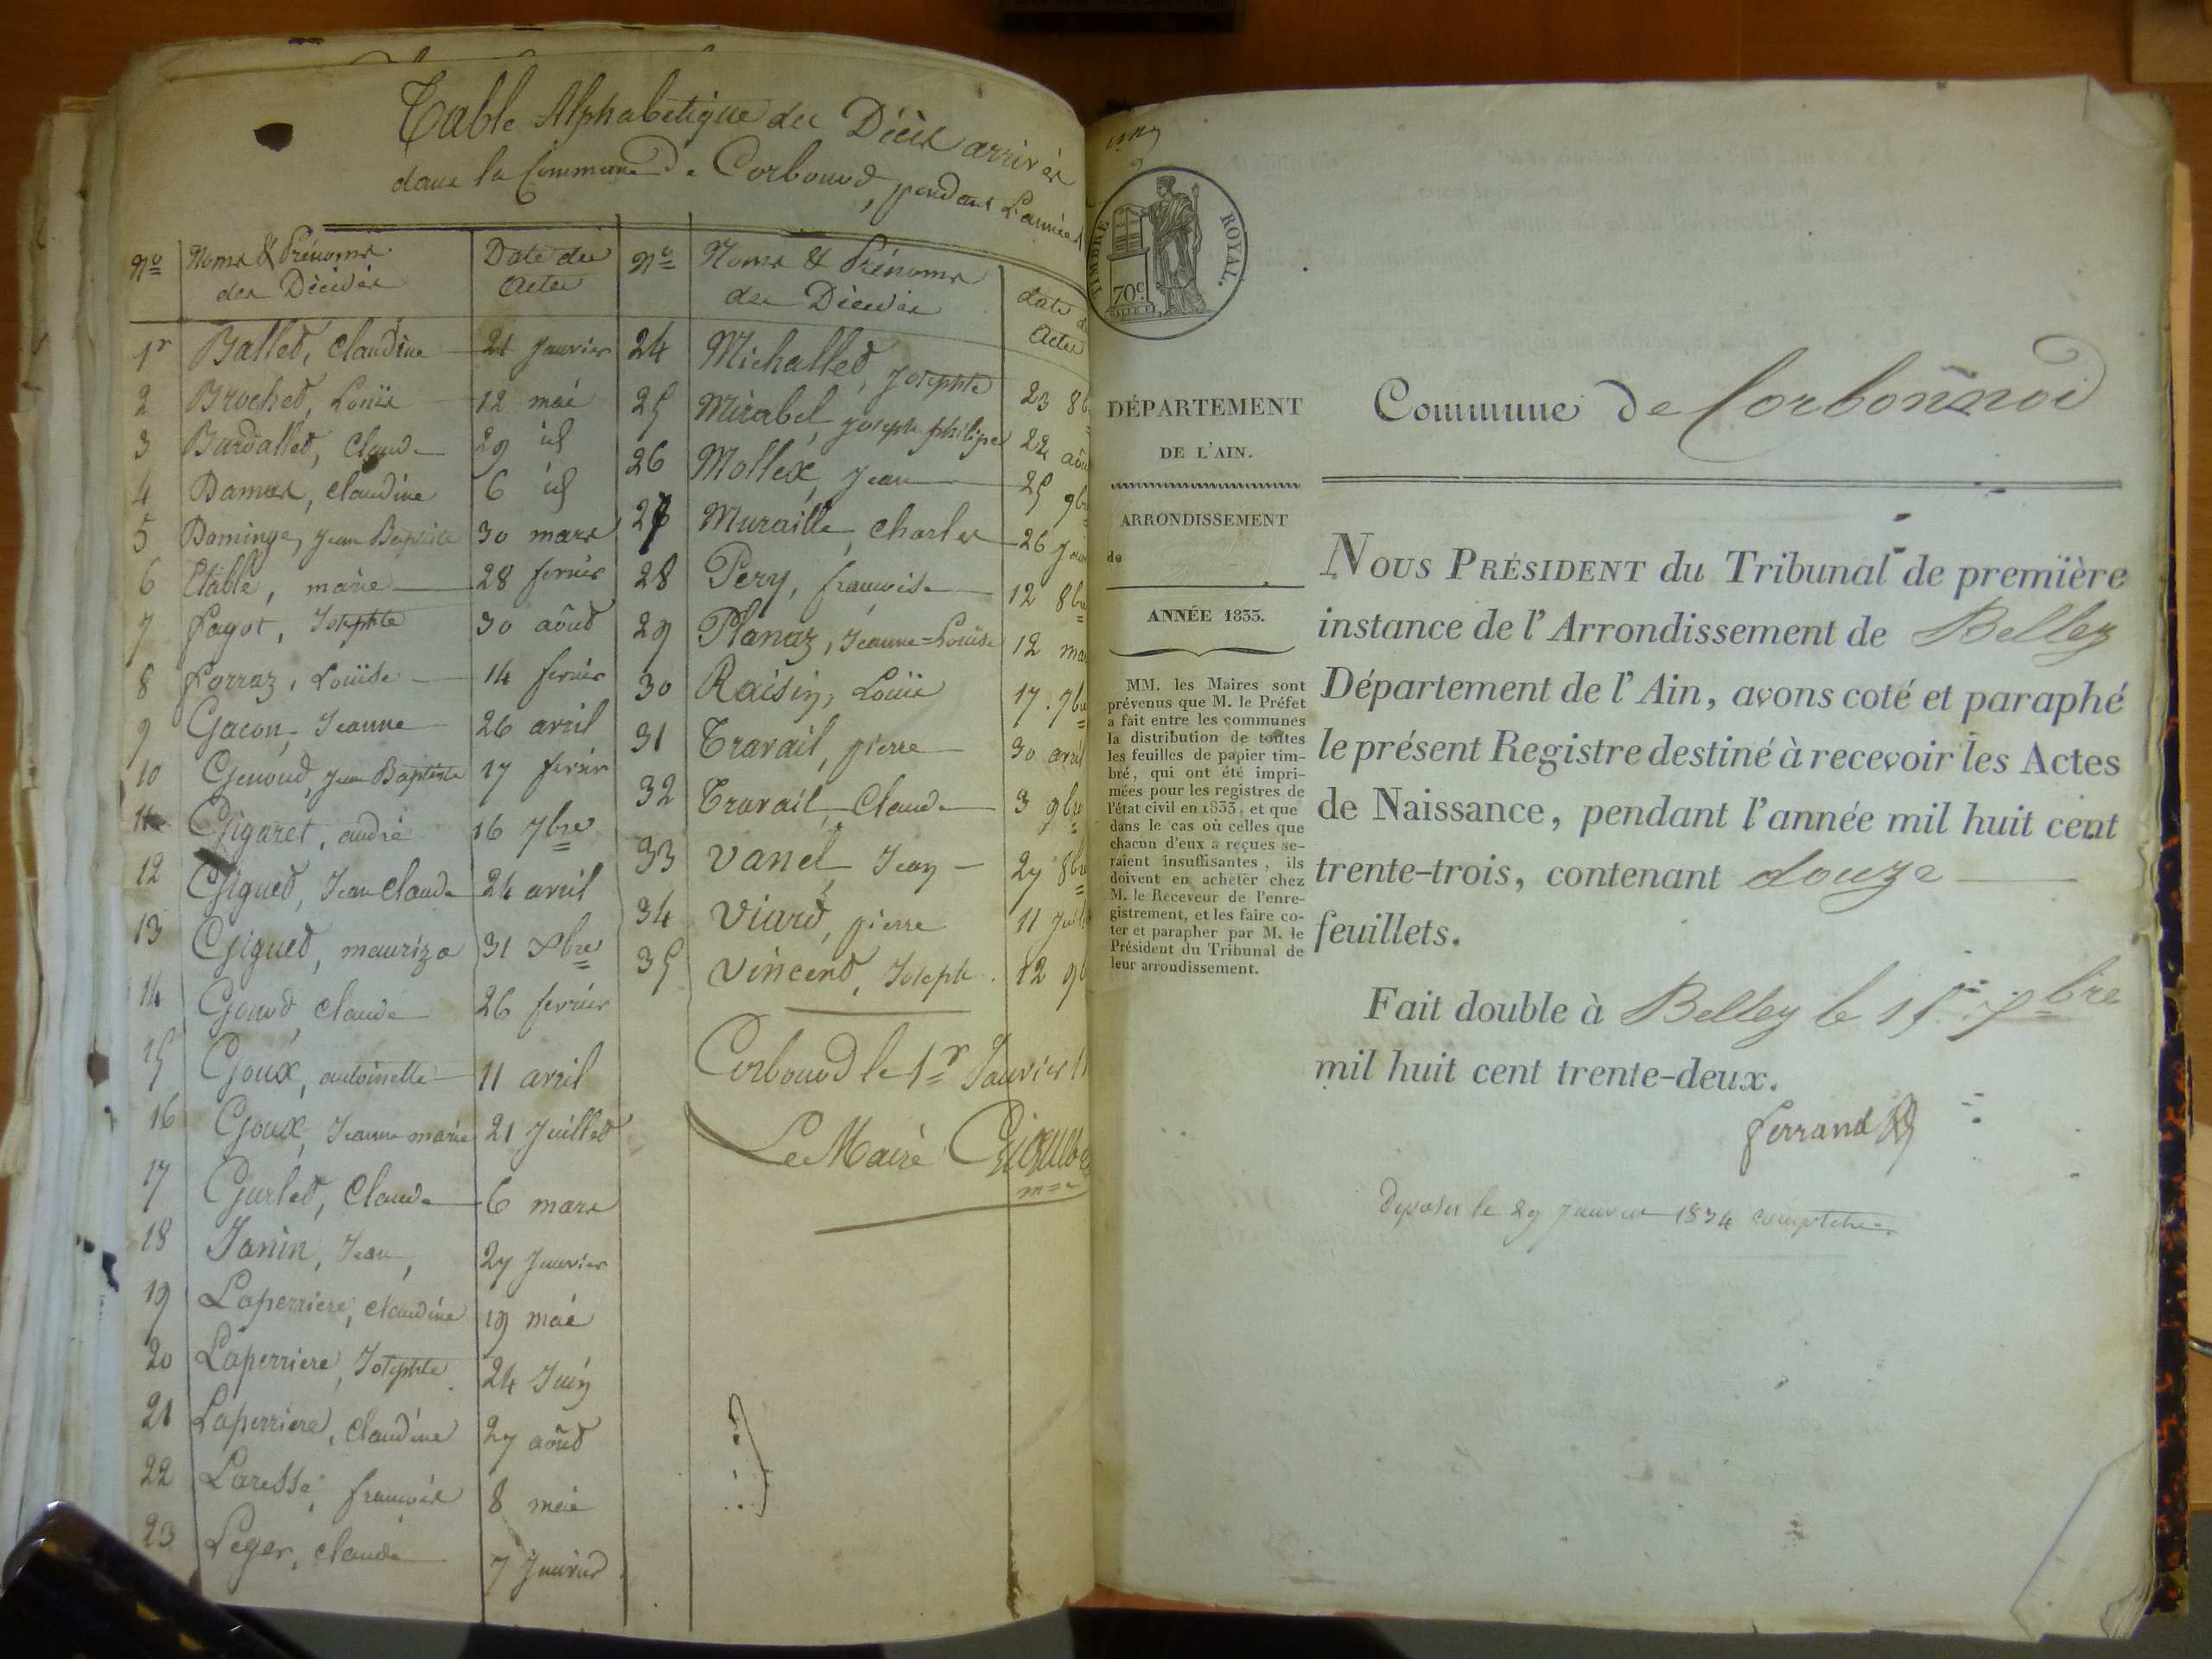 Table Alphabetique des Décès arrivés
dans la Commune de Corbonod, pendant L'année
Nº Noms & Prénoms des Décédés Date des Actes
1r Ballet, Claudine 21 Janvier
2 Brochet, Louis 12 mai
3 Burdallet, Claude 29 id
4 Damas, Claudine 6 id
5 Dominge, Jean Baptiste 30 mars
6 Etable, marie 28 fevrier
7 fagot, Josephte 30 août
8 forraz, Louise 14 fevrier
9 Gacon, Jeanne 26 avril
10 Genoud, Jean Baptiste 17 fevrier
11 Gigaret, andré 16 7bre
12 Giguet, Jean Claude 24 avril
13 Giguet, mauriza 31 8bre
14 Gonod Claude 26 fevrier
15 Goux, antoinette 11 avril
16 Goux, Jeanne marie 21 Juillet
17 Gurlet, Claude 6 mars
18 Janin, Jean, 27 Janvier
19 Laperriere, Claudine 19 mai
20 Laperriere, Josephte 24 Juin
21 Laperriere, Claudine 27 août
22 Laresse, francois 8 mai
23 Leger, Claude 7 Janvier
Nº Noms & Prénoms des Décédés date des Actes
24 Michallet, Josephte 23 8b
25 Mirabel, Joseph philipe 22 aôu
26 Mollex, Jean 25 9br
27 Muraille, Charles 26 Jan
28 Pery, francoise 12 8bre
29 Planaz, Jeanne=Louise 12 ma
30 Raisin, Louis 17. 7bre
31 Travail, pierre 30 avril
32 Travail, Claude 3 9bre
33 Vanel, Jean 27 8bre
34 Viard, pierre 11 Juill
35 Vincent, Joseph. 12 9b
Corbonod le 1r Janvier 1
Le Maire Giguet
TIMBRE ROYAL.
70c.
DÉPARTEMENT
DE L'AIN.
ARRONDISSEMENT
de
ANNÉE 1833.
MM. les Maires sont
prévenus que M. le Préfet
a fait entre les communes
la distribution de toutes
les feuilles de papier tim-
bré, qui ont été impri-
mées pour les registres de
l'état civil en 1833, et que
dans le cas où celles que
chacun d'eux a reçues se-
raient insuffisantes, ils
doivent en acheter chez
M. le Receveur de l'enre-
gistrement, et les faire co-
ter et parapher par M. le
Président du Tribunal de
leur arrondissement.
Commune de Corbonnod
NOUS PRÉSIDENT du Tribunal de première
instance de l'Arrondissement de Belley
Département de l'Ain, avons coté et paraphé
le présent Registre destiné à recevoir les Actes
de Naissance, pendant l'année mil huit cent
trente-trois, contenant douze
feuillets.
Fait double à Belley le 15 7bre
mil huit cent trente-deux.
ferrand
Deposés le 29 Janvier 1834